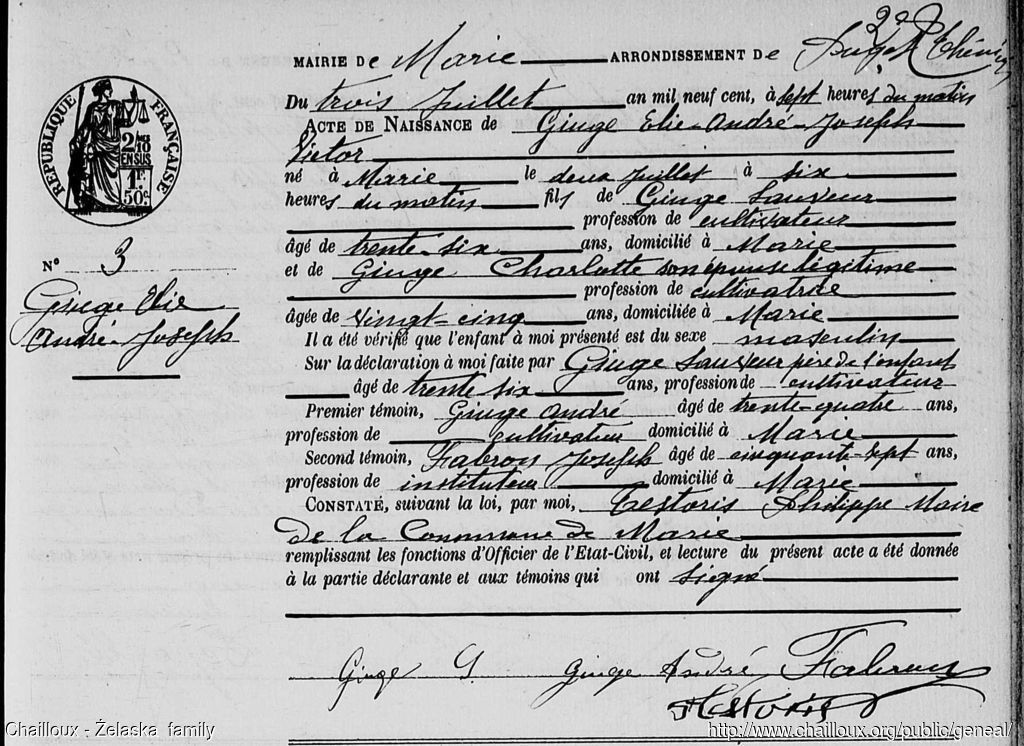 MAIRIE DE Marie ARRONDISSEMENT DE Puget Théniers
Du trois Juillet an mil neuf cent, à sept heures du matin
ACTE DE NAISSANCE de Giuge Elie-André-Joseph
Victor
né à Marie le deux Juillet à six
heures du matin fils de Giuge Sauveur
profession de cultivateur
âgé de trente-six ans, domicilié à Marie
et de Giuge Charlotte son épouse légitime
profession de cultivatrice
âgée de vingt-cinq ans, domiciliée à Marie
Il a été vérifié que l'enfant à moi présenté est du sexe masculin
Sur la déclaration à moi faite par Giuge Sauveur père de l'enfant
âgé de trente six ans, profession de cultivateur
Premier témoin, Giuge André âgé de trente-quatre ans,
profession de cultivateur domicilié à Marie
Second témoin, Fabron Joseph âgé de cinquante-sept ans,
profession de instituteur domicilié à Marie
CONSTATÉ, suivant la loi, par moi, Testoris Philippe Maire
de la Commune de Marie
remplissant les fonctions d'Officier de l'Etat-Civil, et lecture du présent acte a été donnée
à la partie déclarante et aux témoins qui ont signé
RÉPUBLIQUE FRANÇAISE
2/10
EN SUS
1F.
50c
N° 3
Giuge Elie
André-Joseph
Giuge S. Giuge André Fabron
Testoris
Chailloux - Żelaska family
http://www.chailloux.org/public/geneal/